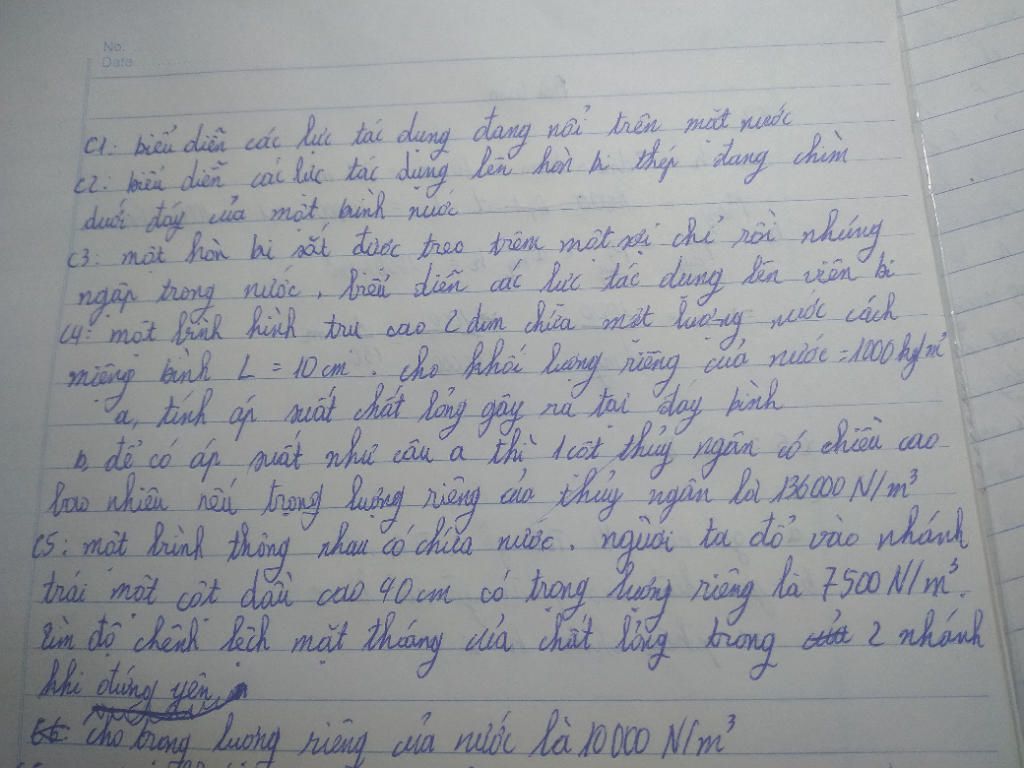 No.
Date
C1: biểu diễn các lực tác dụng đang nổi trên mặt nước
C2: biểu diễn các lực tác dụng lên hòn bi thép đang chìm
dưới đáy của một bình nước
C3: một hòn bi sắt được treo trêm một sợi chỉ rồi nhúng
ngập trong nước. biểu diễn các lực tác dụng lên viên bi
C4: một bình hình trụ cao 2dm chứa một lượng nước cách
miệng bình L = 10cm. cho khối lượng riêng của nước = 1000 kg/m³
a, tính áp suất chất lỏng gây ra tại đáy bình
b, để có áp suất như câu a thì 1 cột thủy ngân có chiều cao
bao nhiêu nếu trọng lượng riêng của thủy ngân là 136000 N/m³
C5: một bình thông nhau có chứa nước. người ta đổ vào nhánh
trái một cột dầu cao 40cm có trọng lượng riêng là 7500 N/m³.
tìm độ chênh lệch mặt thoáng của chất lỏng trong 2 nhánh
khi đứng yên,
cho trọng lượng riêng của nước là 10000 N/m³